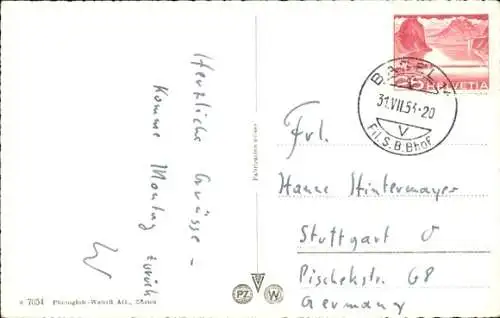 Herzliche Grüsse –
Komme Montag zurück
W
25 HELVETIA
BASEL 2
31.VII.53-20
V
Fil. S.B.Bhof
Frl.
Hanne Hintermayer
Stuttgart O
Pischekstr. 68
Germany
7054 Photoglob-Wehrli AG., Zürich
PZ W